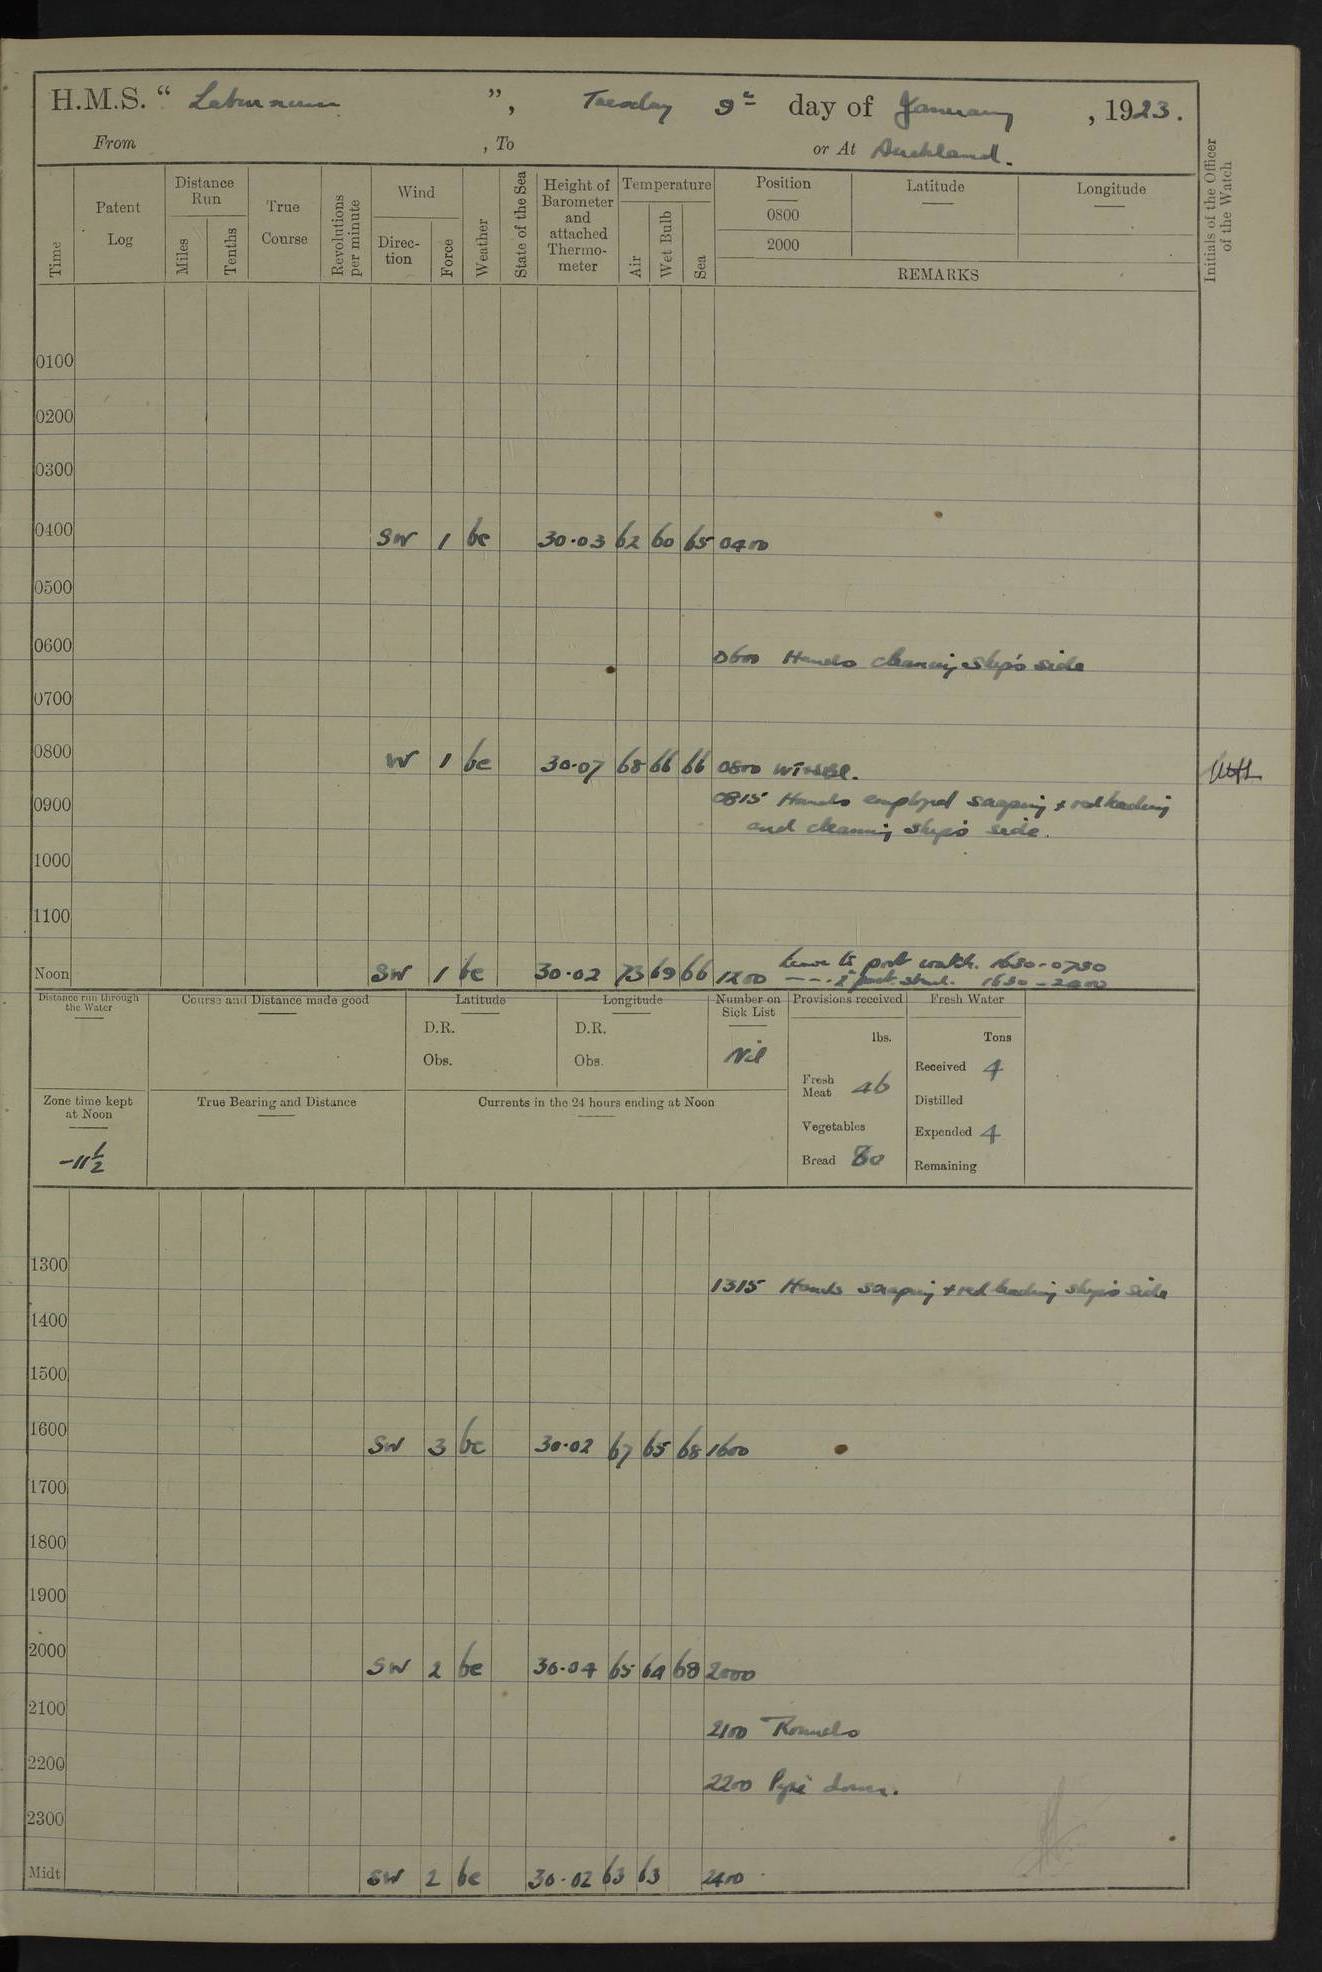 H.M.S. “ Laburnum ”, Tuesday 9th day of January, 1923.
From , To or At Auckland.
Time Patent Log Distance Run Miles Tenths True Course Revolutions per minute Wind Direc-tion Force Weather State of the Sea Height of Barometer and attached Thermo-meter Temperature Air Wet Bulb Sea Position 0800 2000 Latitude Longitude REMARKS Initials of the Officer of the Watch
0100
0200
0300
0400 SW 1 bc 30·03 62 60 65 0400
0500
0600 0600 Hands cleaning ship's side
0700
0800 W 1 bc 30·07 68 66 66 0800
0900 0815 Hands employed scraping + redleading
and cleaning ship's side.
1000
1100
Leave to port watch. 1630-0730
Noon SW 1 bc 30·02 73 69 66 1200 1630-2200
Distance run through the Water Course and Distance made good Latitude D.R. Obs. Longitude D.R. Obs. Number on Sick List Nil Provisions received lbs. Fresh Meat 46 Vegetables Bread 80 Fresh Water Tons Received 4 Distilled Expended 4 Remaining
Zone time kept at Noon -11½ True Bearing and Distance Currents in the 24 hours ending at Noon
1300 1315 Hands scraping + red leading ship's side
1400
1500
1600 SW 3 bc 30·02 67 65 68 1600
1700
1800
1900
2000 SW 2 bc 30·04 65 64 68 2000
2100 2100 Rounds
2200 2200 Pipe down.
2300
Midt SW 2 bc 30·02 63 63 2400